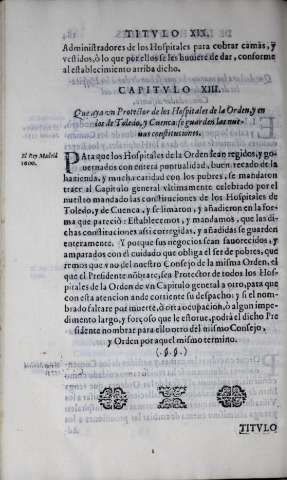 TITVLO XIX.
Administradores de los Hospitales para cobrar camas, y
vestidos, ò lo que por ellos se les huuiere de dar, conforme
al establecimiento arriba dicho.
CAPITVLO XIII.
Que aya vn Protector de los Hospitales de la Orden, y en
los de Toledo, y Cuenca se guarden las nue-
uas constituciones.
El Rey Madrid
1600.
PAra que los Hospitales de la Orden sean regidos, y go-
uernados con entera puntualidad, buen recado de la
hazienda, y mucha caridad con los pobres, se mandaron
traer al Capitulo general vltimamente celebrado por el
nuestro mandado las constituciones de los Hospitales de
Toledo, y de Cuenca, y se limaron, y añadieron en la for-
ma que pareciò: Establecemos, y mandamos, que las di-
chas constituciones assi corregidas, y añadidas se guarden
enteramente. Y porque sus negocios sean fauorecidos, y
amparados con el cuidado que obliga el ser de pobres, que
remos que vno del nuestro Consejo de la misma Orden, el
que el Presidente nõbrare, sea Protector de todos los Hos-
pitales de la Orden de vn Capitulo general a otro, para que
con esta atencion ande corriente su despacho; y si el nom-
brado faltare por muerte, ò otra ocupacion, ò algun impe-
dimento largo, y forçoso que le estorue, podrà el dicho Pre
sidente nombrar para ello otro del mismo Consejo,
y Orden por aquel mismo termino.
(.§.§.)
TITVLO